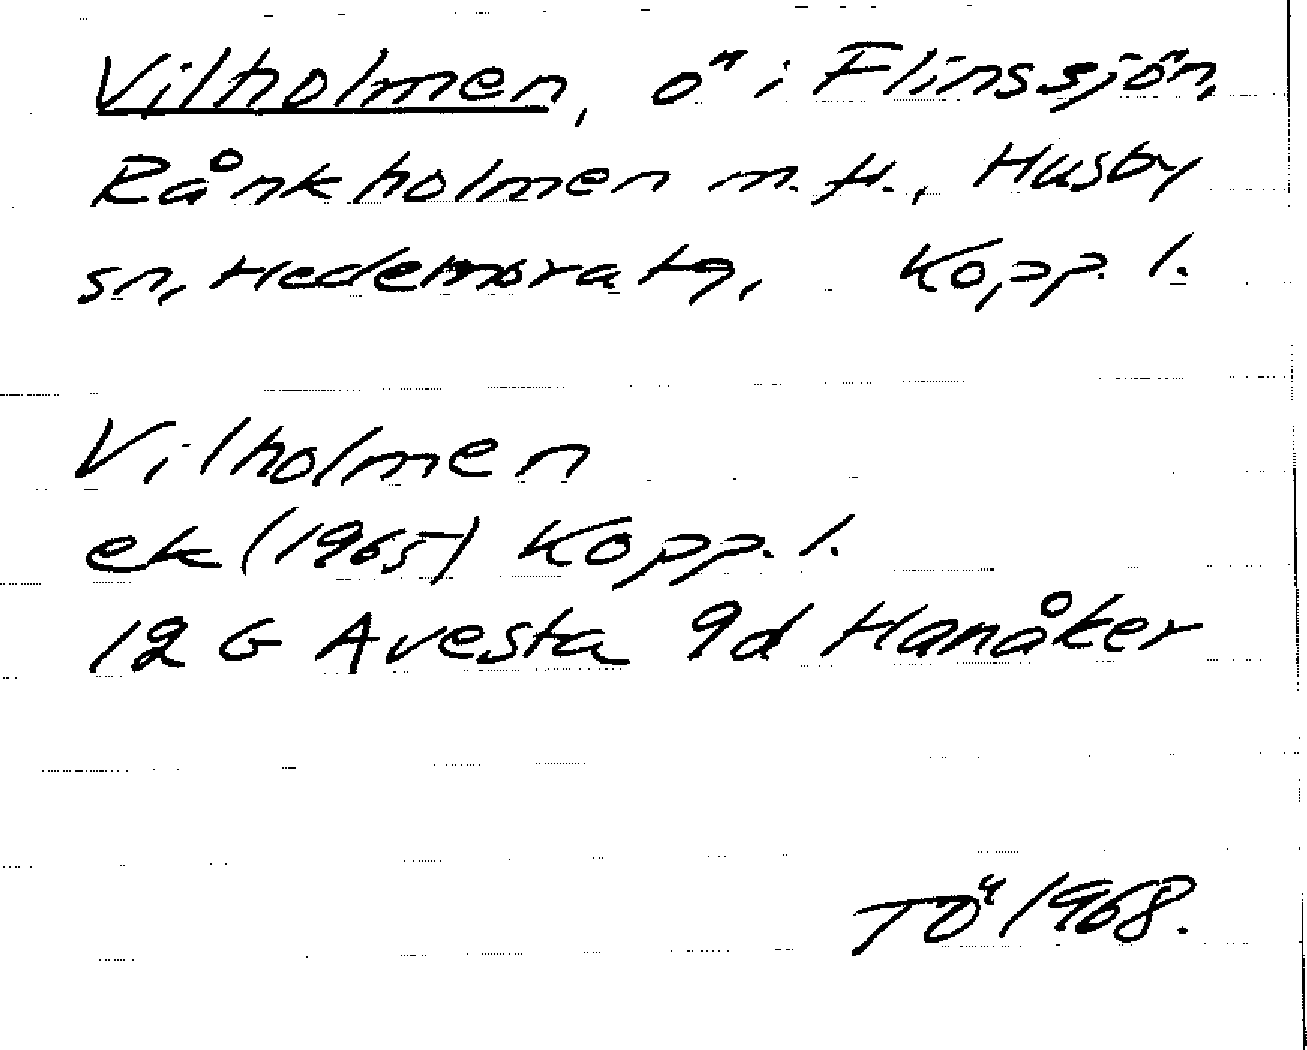 Vilholmen, ö i Flinssjön,
Rånkholmen m.fl., Husby
sn, Hedemora tg, Kopp. l.
Vilholmen
ek (1965) Kopp. l.
12 G Avesta 9d Hanåker
TÖ 1968.